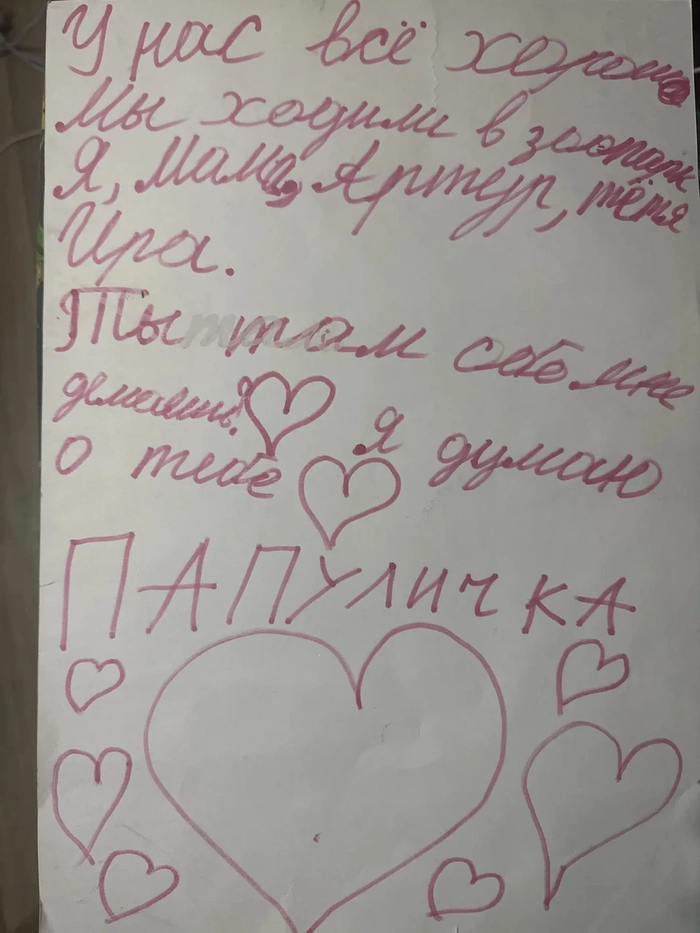 У нас всё хорошо
Мы ходили в зоопарк
Я, Мама, Артур, тётя
Ира.
Ты там обо мне
думаешь? Я думаю
о тебе
ПАПУЛИЧКА